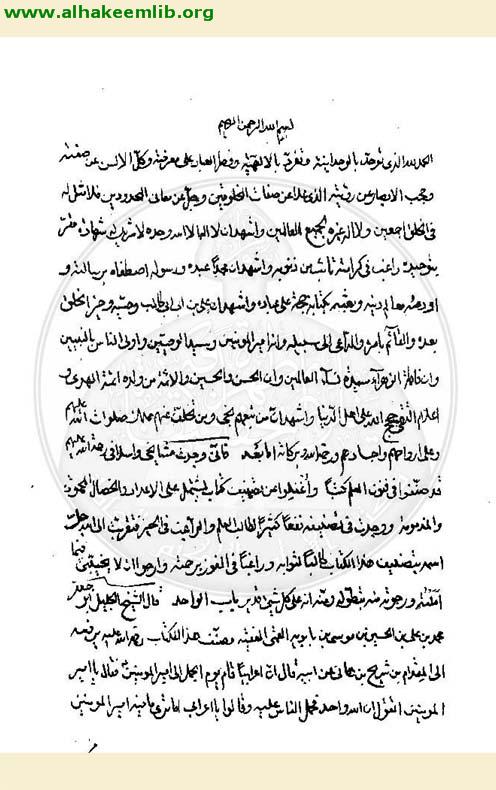 www.alhakeemlib.org
بسم الله الرحمن الرحيم
الحمد لله الذي توحد بالوحدانية وتفرد بالالهية وفطر العباد على معرفته وكل الالسن عن صفته
وحجب الابصار عن رؤيته الذي علا عن صفات المخلوقين وجل عن معاني المحدودين فلا مثل له
في الخلق اجمعين ولا اله غيره لجميع العالمين واشهد ان لا اله الا الله وحده لا شريك له شهادة مقر
بتوحيده راغب في كرامته تائب من ذنوبه واشهد ان محمدا عبده ورسوله اصطفاه برسالته و
دينه وبعثه بكتابه حجة على عباده واشهد ان علي بن ابي طالب وصيه وخير الخلق
بعده والقائم بامره والداعي الى سبيله وانه امير المؤمنين وسيد الوصيين واولى الناس بالنبيين
وان فاطمة الزهراء سيدة نساء العالمين وان الحسن والحسين والائمة من ولده ائمة الهدى و
اعلام التقى حجج الله على اهل الدنيا واشهد ان من تبعهم نجى ومن تخلف عنهم هلك صلوات الله عليهم
وعلى ارواحهم واجسادهم ورحمة الله وبركاته اما بعد فاني وجدت مشايخي واسلافي رحمة الله عليهم
قد صنفوا في فنون العلم كتبا واغفلوا عن تصنيف كتاب يشتمل على الاعداد والخصال المحمودة
والمذمومة ووجدت في تصنيفه نفعا كثيرا لطالب العلم والراغب في الخير فتقربت الى الله جلت
اسمه بتصنيف هذا الكتاب طالبا لثوابه وراغبا في الفوز برحمته وارجو ان لا يخيبني فيما
املته ورجوته منه بتطوله ومنه انه على كل شيء قدير باب الواحد قال الشيخ الجليل ابو جعفر
محمد بن علي بن الحسين بن موسى بن بابويه القمي الفقيه مصنف هذا الكتاب رحمة الله عليه يرفعه
الى المقدام بن شريح بن هاني عن ابيه قال ان اعرابيا قام يوم الجمل الى امير المؤمنين فقال يا امير
المومنين اتقول ان الله واحد فحمل الناس عليه وقالوا يا اعرابي اما ترى ما فيه امير المومنين